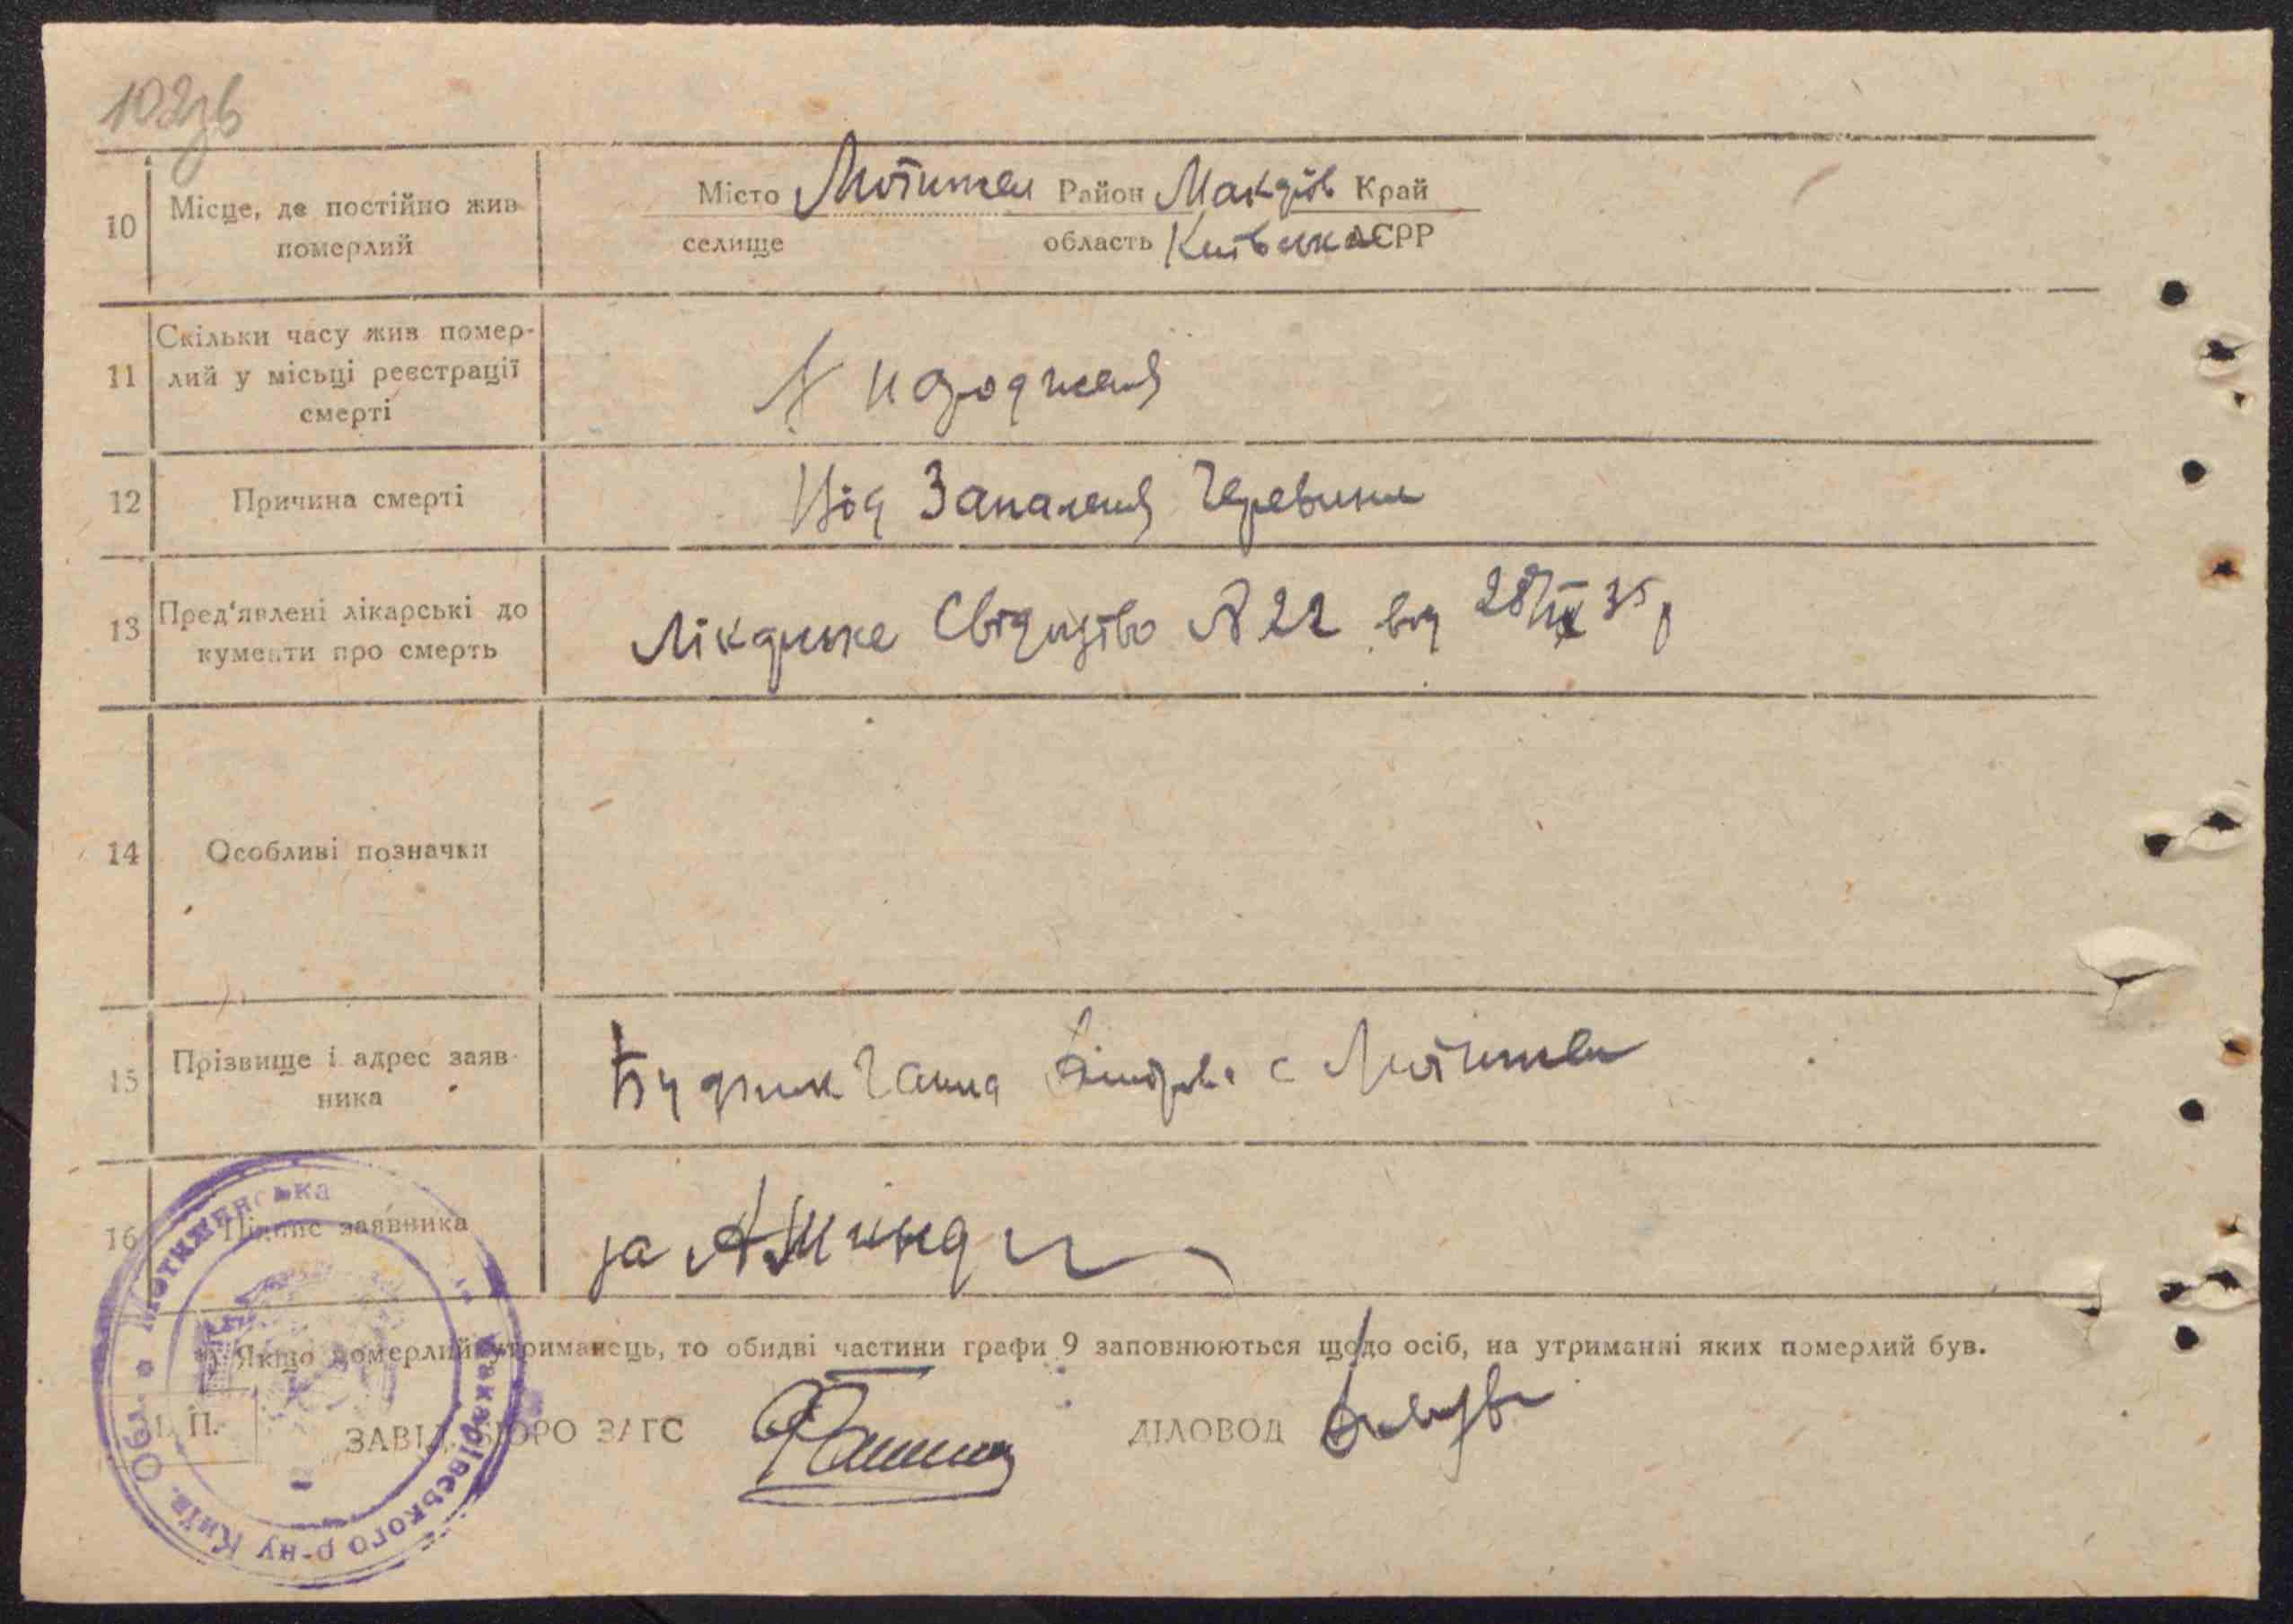 102зв
10 Місце, де постійно жив померлий
Місто Мотижен Район Макарів Край
селище область Київська АСРР
11 Скільки часу жив помер-
лий у місьці реєстрації
смерті
З народженя
12 Причина смерті
Від Запаленя Черевини
13 Пред'явлені лікарські до
кументи про смерть
Лікарське Свідоцтво № 22 від 28/IX 35 р
14 Особливі позначки
15 Прізвище і адрес заяв-
ника
Будник Ганна с Мотижен
16 Підпис заявника
за
*) Якщо померлий утриманець, то обидві частини графи 9 заповнюються щодо осіб, на утриманні яких померлий був.
М. П.
ЗАВІД. БЮРО ЗАГС
ДІЛОВОД
Мотиженська
Макарівського р-ну Київ. Обл.